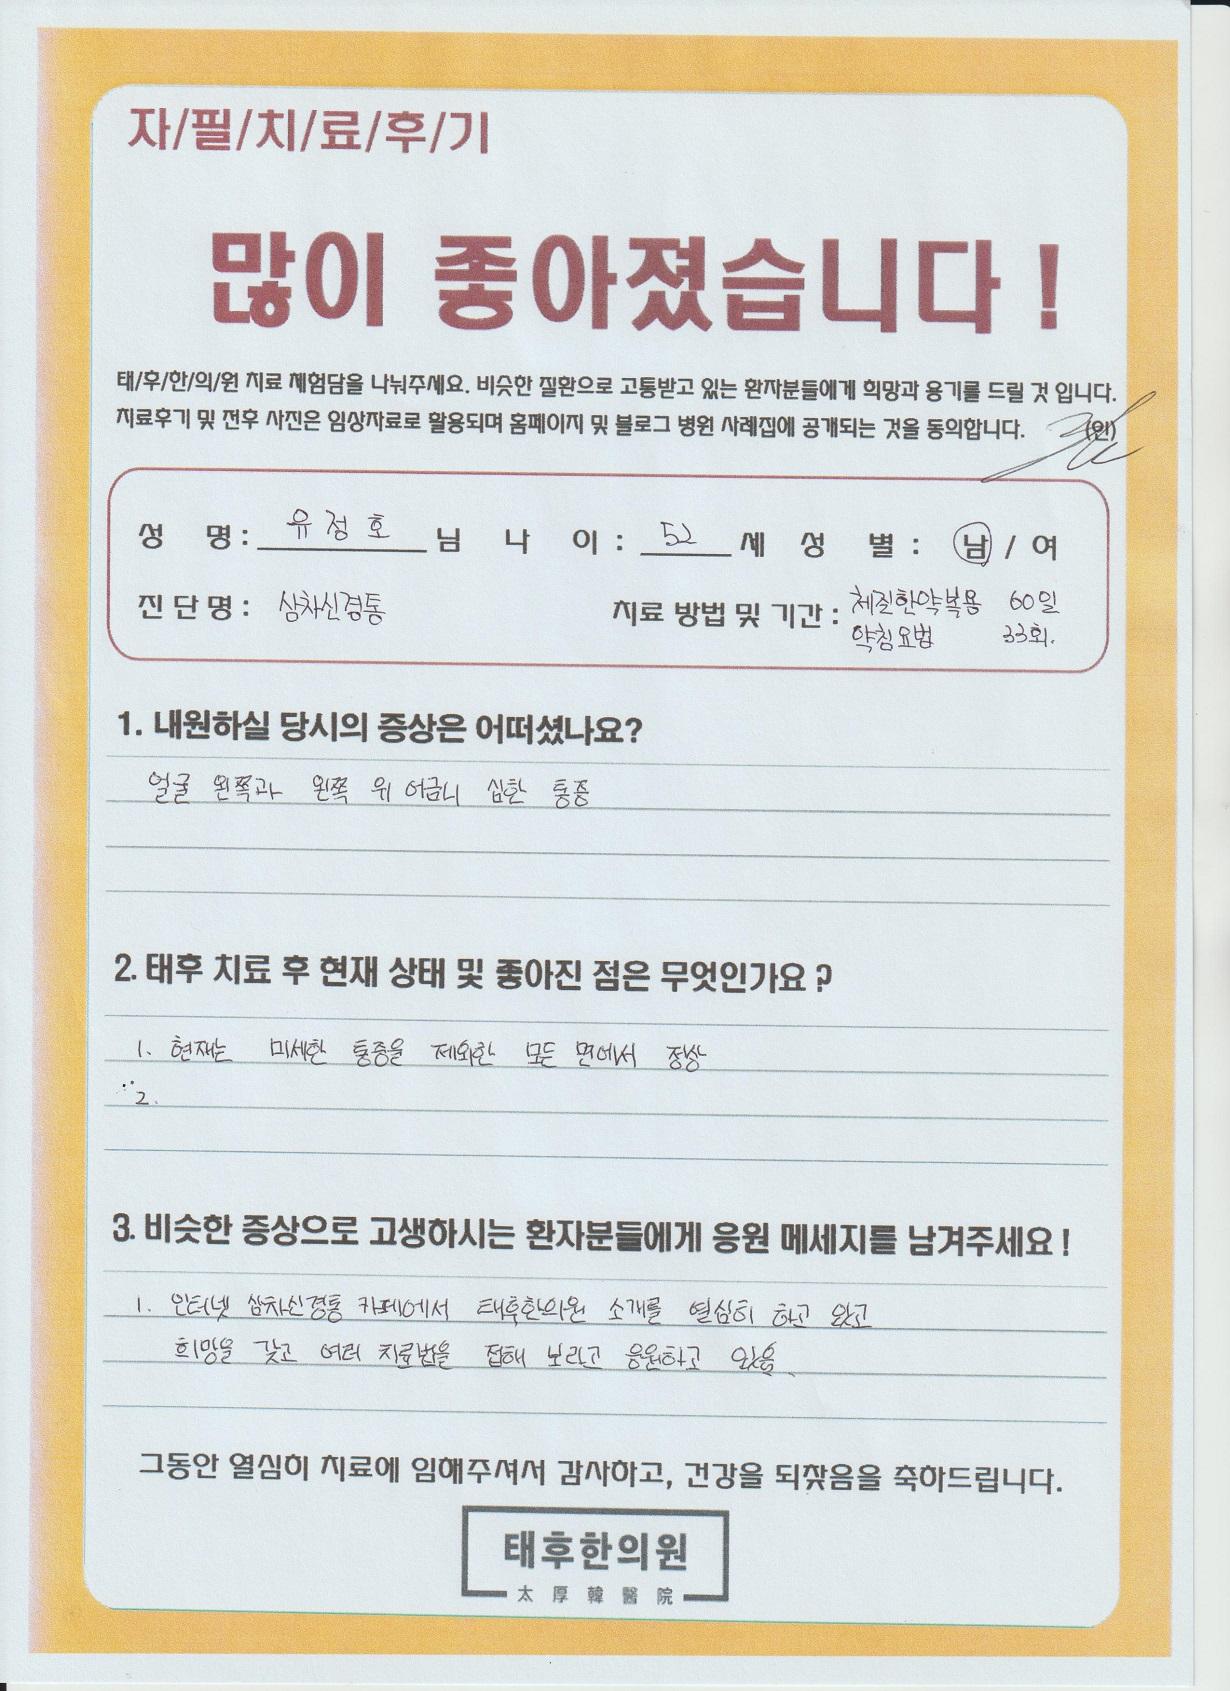 자/필/치/료/후/기
많이 좋아졌습니다!
태/후/한/의/원 치료 체험담을 나눠주세요. 비슷한 질환으로 고통받고 있는 환자분들에게 희망과 용기를 드릴 것 입니다.
치료후기 및 전후 사진은 임상자료로 활용되며 홈페이지 및 블로그 병원 사례집에 공개되는 것을 동의합니다. (인)
성 명: 유정호 님 나 이: 52 세 성 별: 남 / 여
진단명: 삼차신경통 치료 방법 및 기간: 체질한약복용 60일
약침요법 33회.
1. 내원하실 당시의 증상은 어떠셨나요?
얼굴 왼쪽과 왼쪽 위 어금니 심한 통증
2. 태후 치료 후 현재 상태 및 좋아진 점은 무엇인가요?
1. 현재는 미세한 통증을 제외한 모든 면에서 정상
2.
3. 비슷한 증상으로 고생하시는 환자분들에게 응원 메세지를 남겨주세요!
1. 인터넷 삼차신경통 카페에서 태후한의원 소개를 열심히 하고 있고
희망을 갖고 여러 치료법을 접해 보라고 응원하고 있음.
그동안 열심히 치료에 임해주셔서 감사하고, 건강을 되찾음을 축하드립니다.
태후한의원
太厚韓醫院